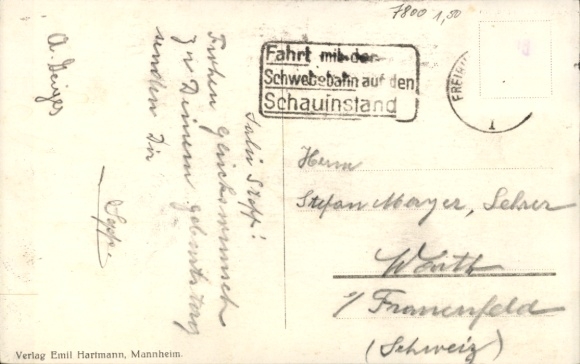 7800 1,50
Fahrt mit der
Schwebebahn auf den
Schauinsland
FREIBU
Salü Steff!
Frohen Glückwunsch
zu Deinem Geburtstag
senden Dir
Seppi
A. Geiges
Herrn
Stefan Meyer, Lehrer
Werth
b/ Frauenfeld
(Schweiz)
Verlag Emil Hartmann, Mannheim.